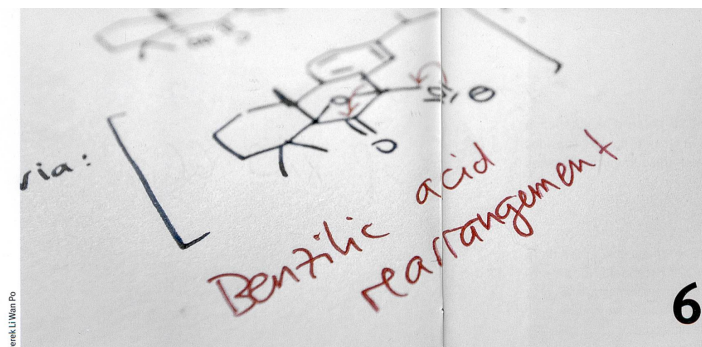 ria:
O
Benzilic acid
rearrangement
erek Li Wan Po
6